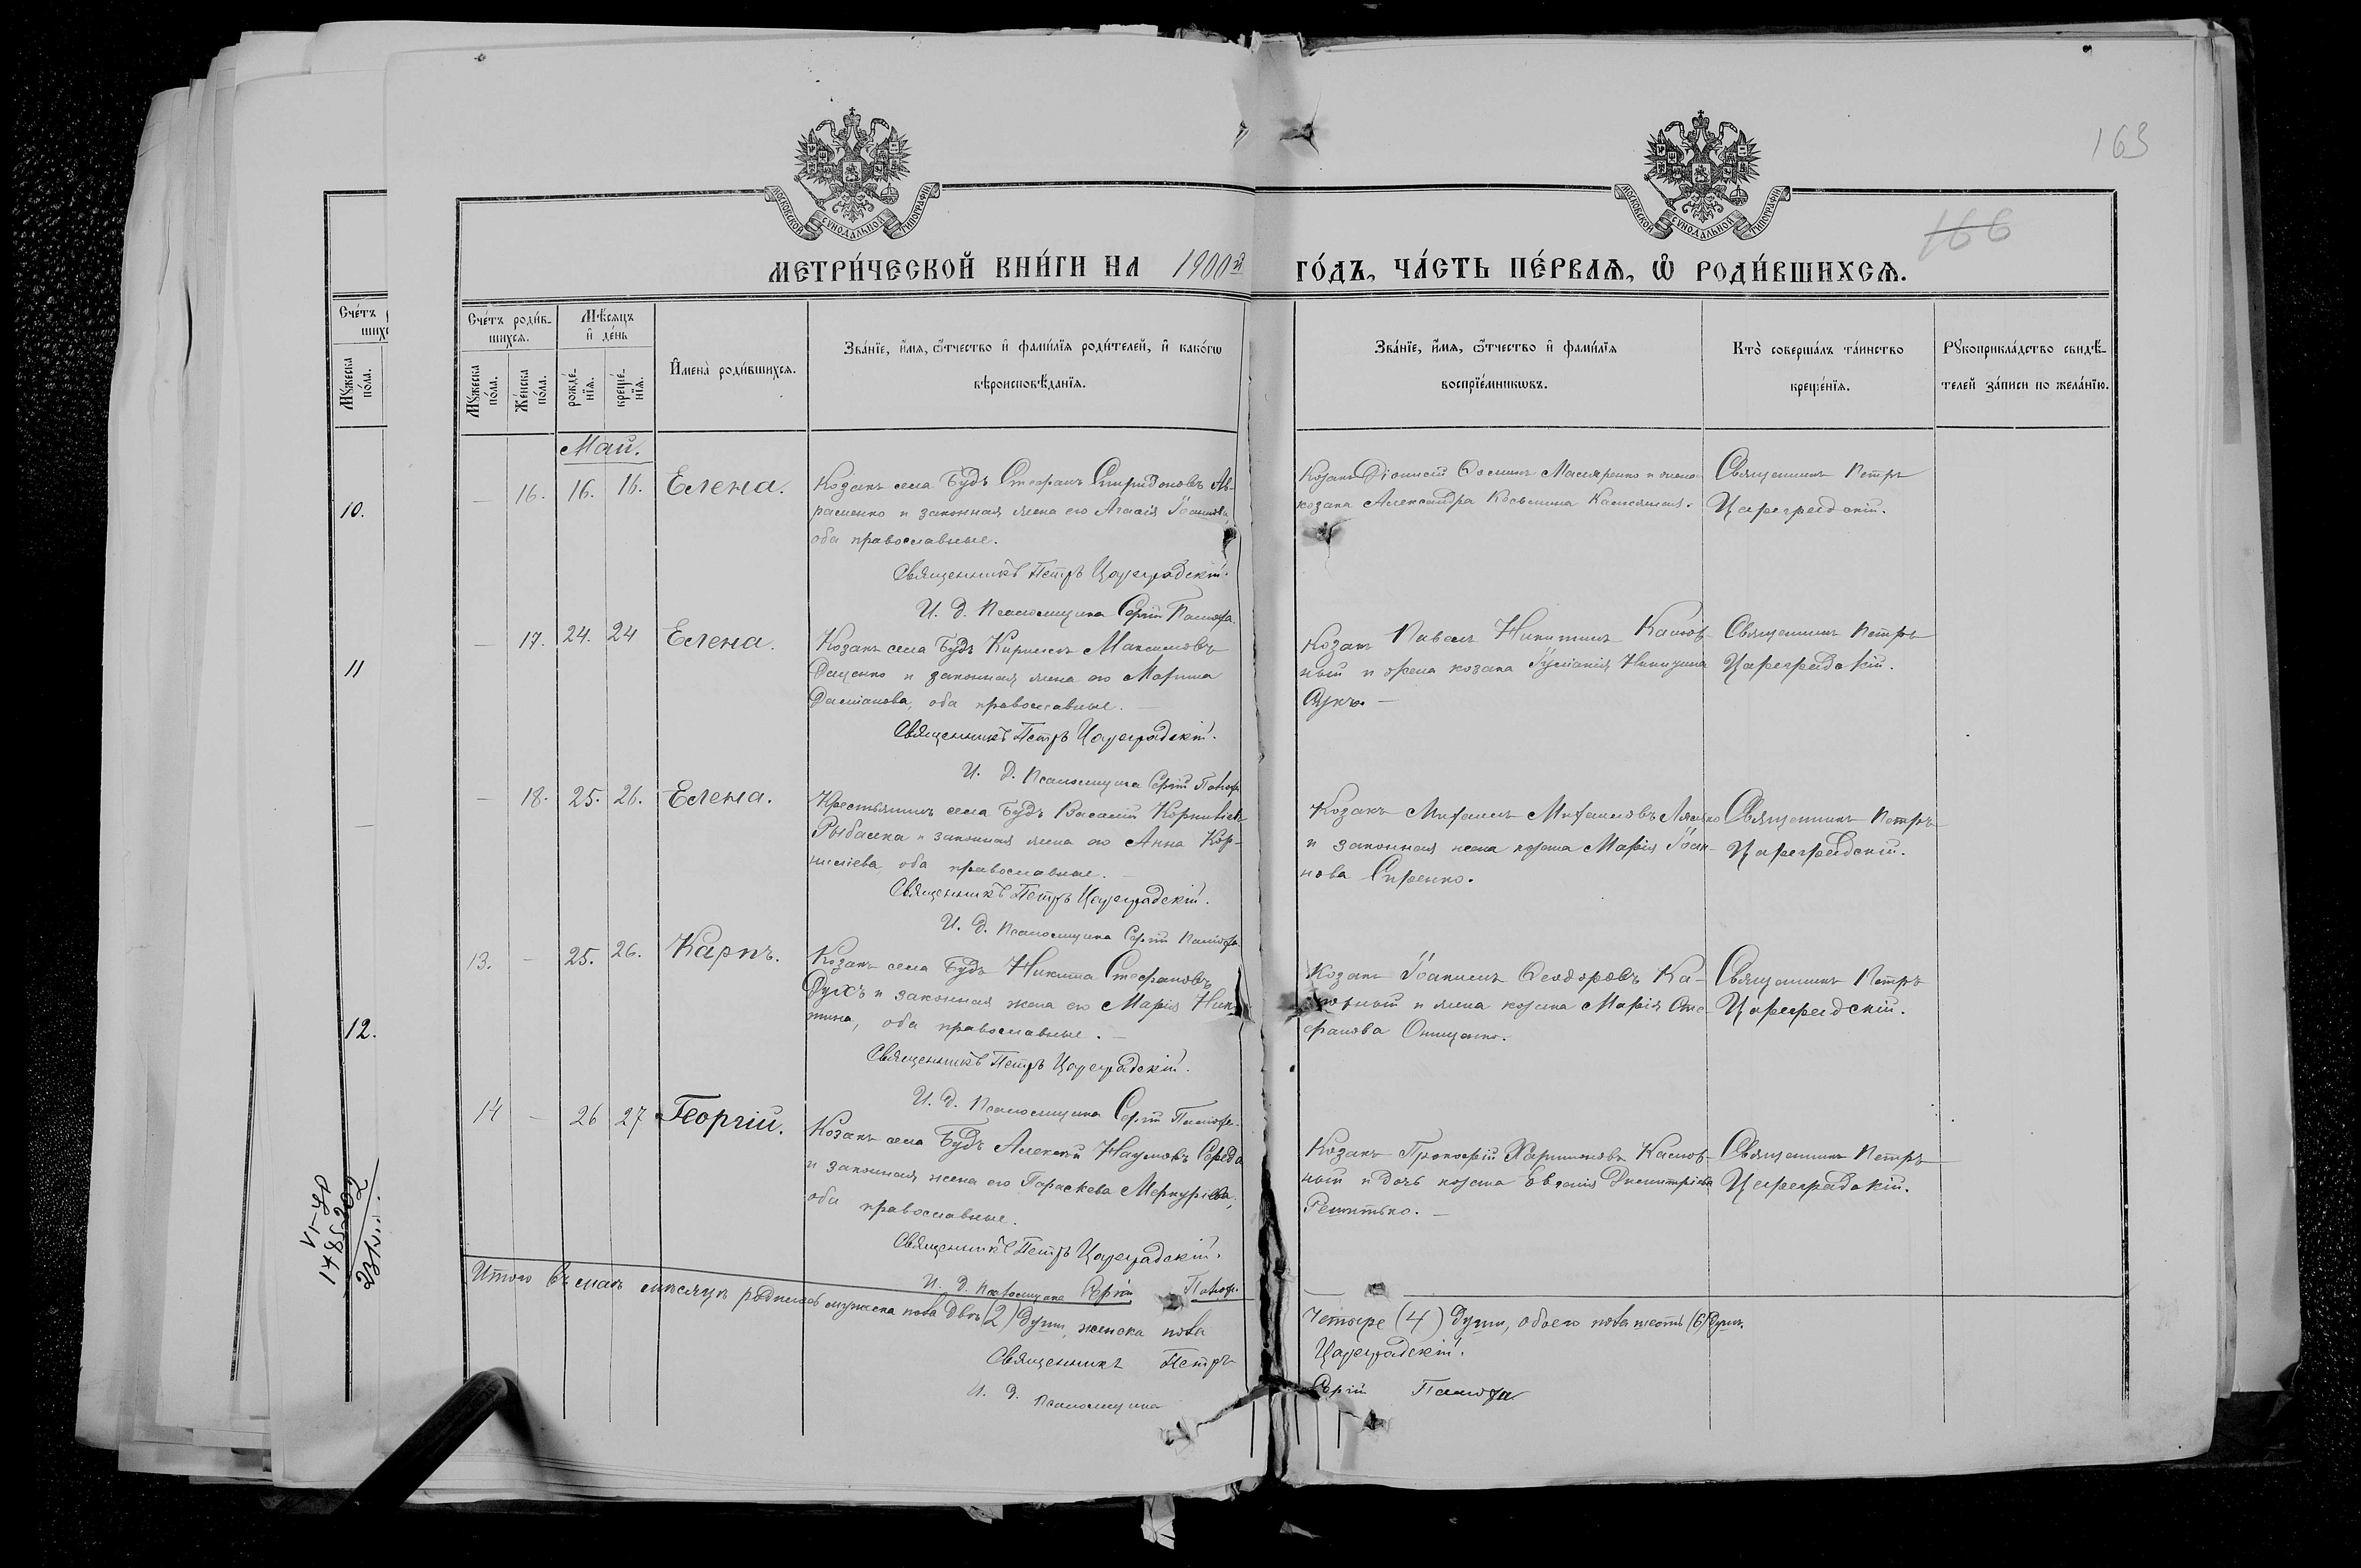 163
166
МОСКОВСКОЙ СѴНОДАЛЬНОЙ ТИПОГРАФІИ
МОСКОВСКОЙ СѴНОДАЛЬНОЙ ТИПОГРАФІИ
МЕТРИ́ЧЕСКОЙ КНИ́ГИ НА 1900й ГО́ДЪ, ЧА́СТЬ ПЕ́РВАѦ, Ѡ҆ РОДИ́ВШИХСѦ.
Сче́тъ
шихс
Мꙋ́жеска
по́ла.
10.
11
12.
VI-УР
1485202
23/VI.
Сче́тъ роди́в-
шихсѧ.
Мꙋ́жеска
по́ла.
Же́нска
по́ла.
Мѣ́сѧцъ
и҆ де́нь
рожде́-
нїѧ.
креще́-
нїѧ.
И҆мена̀ роди́вшихсѧ.
Зва́нїе, и҆́мѧ, ѻ҆́тчество и҆ фами́лїѧ роди́телей, и҆ како́гѡ
вѣроисповѣ́данїѧ.
Зва́нїе, и҆́мѧ, ѻ҆́тчество и҆ фами́лїѧ
воспрїе́мникѡвъ.
Кто̀ соверша́лъ та́инство
креще́нїѧ.
Рꙋкоприкла́дство свидѣ́-
телей за́писи по жела́нїю.
Май.
— 16. 16. 16. Елена.
Козакъ села Будъ Стефанъ Спиридоновъ Ав-
раменко и законная жена его Агафія Іоаннова,
оба православные.
Священникъ Петръ Цареградскій.
И. д. Псаломщика Сергій Панюта.
Козакъ Діонисій Маляренко и жена
козака Александра Косьмина
Священникъ Петръ
Цареградскій.
— 17. 24. 24 Елена.
Козакъ села Будъ Кириллъ Максимовъ
Даценко и законная жена его Марина
Даміанова, оба православные. —
Священникъ Петръ Цареградскій.
И. д. Псаломщика Сергій
Козакъ Павелъ Никитинъ Капов-
ный и жена козака Іуліанія Никитина
Священникъ Петръ
Цареградскій.
— 18. 25. 26. Елена.
Крестьянинъ села Будъ Василій Корниліевъ
Рыбалка и законная жена его Анна Кор-
ниліева, оба православные. —
Священникъ Петръ Цареградскій.
И. д. Псаломщика Сергій
Козакъ Михаилъ Михаиловъ
и законная жена козака Марія Іоан-
нова Сиренко.
Священникъ Петръ
Цареградскій.
13. — 25. 26. Карпъ.
Козакъ села Будъ Никита Стефановъ
Духъ и законная жена его Марія Ники-
тина, оба православные. —
Священникъ Петръ Цареградскій.
И. д. Псаломщика Сергій
Козакъ Іоаннъ Ѳеодоровъ Ка-
и жена козака Марія Сте-
фанова Онищенко.
Священникъ Петръ
Цареградскій.
14 — 26 27 Георгій.
Козакъ села Будъ Алексѣй Наумовъ Середа
и законная жена его Параскева Меркуріева,
оба православные.
Священникъ Петръ Цареградскій.
И. д. Псаломщика Сергій
Козакъ Прокофій Харитоновъ
ный и дочь козака Евгенія Димитріева
Решетько. —
Священникъ Петръ
Цареградскій.
Итого въ маѣ мѣсяцѣ родилось мужска пола двѣ (2) души, женска пола
Четыре (4) души, обоего пола шесть (6) душъ.
Священникъ Петръ Цареградскій.
И. д. Псаломщика Сергій Панюта